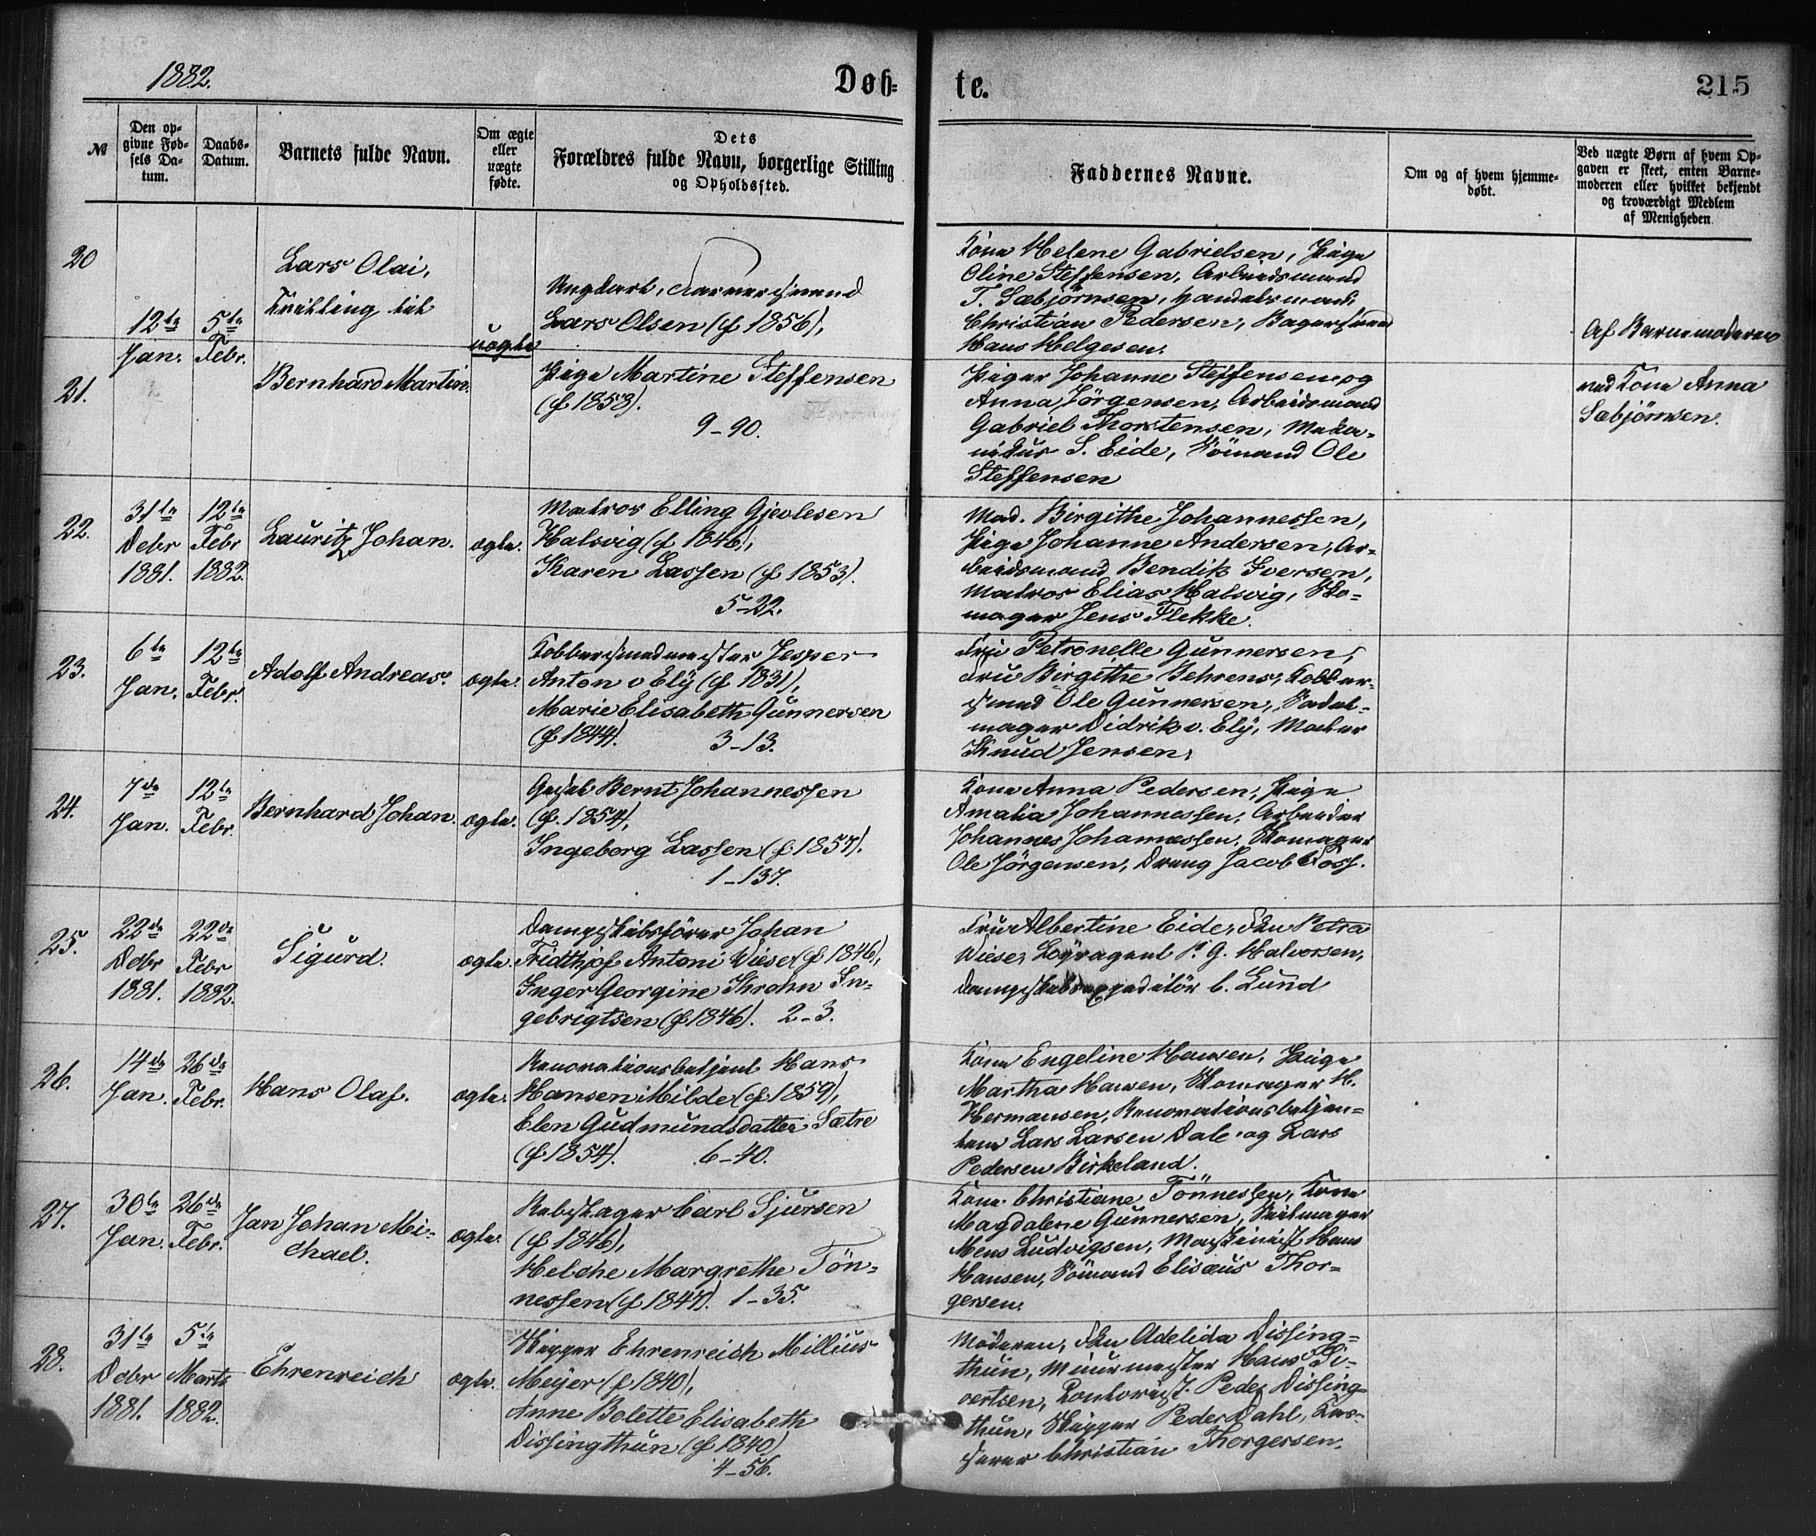 1882.
Døb-
te.
215
№
Den op-
givne Fød-
sels Da-
tum.
Daabs-
Datum.
Barnets fulde Navn.
Om ægte
eller
uægte
fødte.
Dets
Forældres fulde Navn, borgerlige Stilling
og Opholdssted.
Faddernes Navne.
Om og af hvem hjemme-
døbt.
Ved uægte Børn af hvem Op-
gaven er skeet, enten Barne-
moderen eller hvilket bekjendt
og troværdigt Medlem
af Menigheden.
20
12te
Jan.
5te
Febr.
Lars Olai,
Tvilling til
uægte
Ungkarl,
Lars Olsen (f 1856),
Kone Helene Gabrielsen, Pige
Oline Steffensen, Arbeidsmand
T. Sæbjörnsen, Handelsmand
Christian Pedersen, Bagersvend
Hans Helgesen.
Af Barnemoderen
21.
Bernhard Martin.
Pige Martine Steffensen
(f 1858).
9-90.
Piger Johanne Steffensen og
Anna Jörgensen, Arbeidsmand
Gabriel Thorstensen, Meka-
nikus S. Eide, Sömand Ole
Steffensen
ved Kone Anna
Sæbjörnsen.
22.
31te
Debr
1881.
12te
Febr
1882.
Lauritz Johan.
ægte.
Matros Elling Gjevlesen
Halsvig (f 1846),
Karen Lassen (f 1853).
5-22.
Mad. Birgithe Johannessen,
Pige Johanne Andersen, Ar-
beidsmand Bendik Iversen,
Matros Elias Halsvig, Sko-
mager Jens Flekke.
23.
6te
Jan.
12te
Febr.
Adolf Andreas.
ægte.
Kobbersmedmester Jesper
Anton v Ely (f 1831),
Marie Elisabeth Gunnersen
(f 1844).
3-13.
Fru Petronelle Gunnersen,
Fru Birgithe Behrens, Kobber-
smed Ole Gunnersen, Sadel-
mager Didrik v. Ely, Maler
Knud Jensen.
24.
7de
Jan.
12te
Febr.
Bernhard Johan.
ægte.
Bernt Johannessen
(f. 1854),
Ingeborg Lassen (f 1857).
1-137.
Kone Anna Pedersen, Pige
Amalia Johannessen, Arbeider
Johannes Johannessen, Skomager
Ole Jörgensen, Dreng Jacob Foss.
25.
22de
Debr
1881.
22de
Febr
1882.
Sigurd.
ægte.
Dampskibsförer Johan
Fridthjof Antoni Wiese (f 1846),
Inger Georgine Krohn In-
gebrigtsen (f 1846). 2-3.
Fru Albertine Eide, Frk Petra
Wiese, P. G. Halvorsen,
Dampskibsexpeditör C. Lund
26.
14de
Jan.
26de
Febr.
Hans Olaf.
ægte.
Renovationsbetjent Hans
Hansen Milde (f 1859),
Elen Gudmundsdatter Sætre
(f 1854).
6-40.
Kone Engeline Hansen, Pige
Martha Hansen, Skomager H.
Hermansen, Renovationsbetjen-
tene Lars Larsen Dale og Lars
Pedersen Birkeland.
27.
30te
Jan.
26de
Febr.
Jan Johan Mi-
chael.
ægte.
Rebslager Carl Sjursen
(f 1846),
Helche Margrethe Tön-
nessen (f 1847). 1-35.
Kone Christiane Tönnessen, Kone
Magdalene Gunnersen, Seilmager
Mens Ludvigsen, Maskinist Hans
Hansen, Sömand Elisæus Thor-
gersen.
28.
31te
Debr
1881.
5te
Marts
1882.
Ehrenreich
ægte.
Skipper Ehrenreich Millius
Meyer (f 1840),
Anne Bolette Elisabeth
Dissingthun (f 1840)
4-56.
Moderen, Frk Adelida Dissing-
thun, Muurmester Hans Si-
vertsen, Kontorist Peder Dissing-
thun, Skipper Peder Dahl, Kas-
serer Christian Thorgersen.